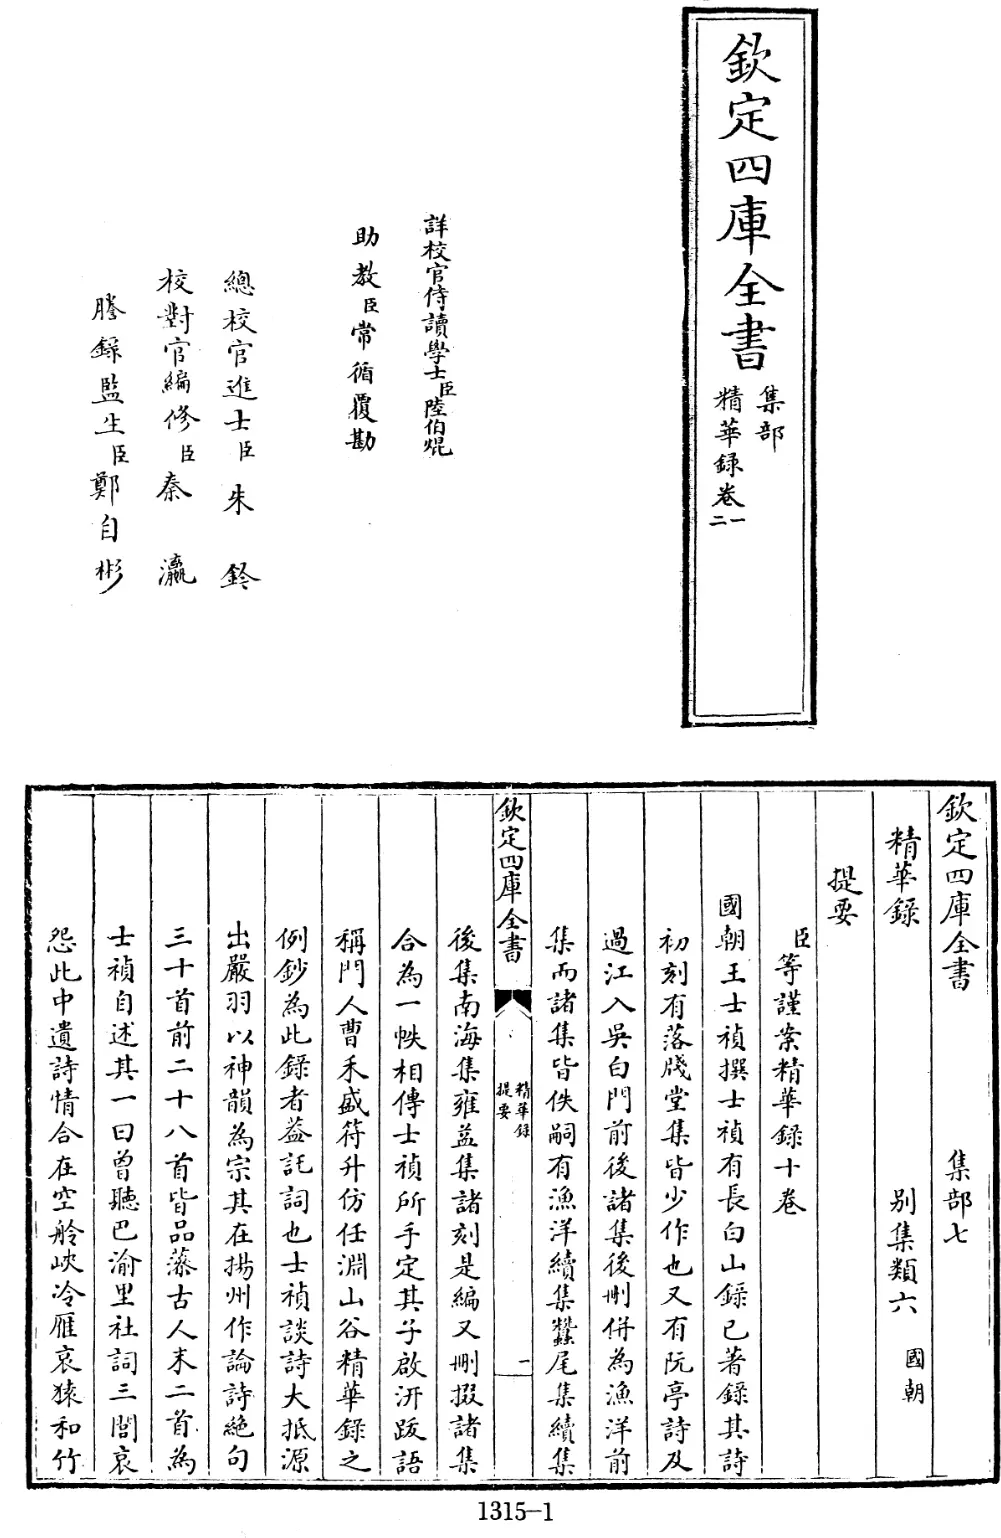 欽定四庫全書
集部
精華録卷一二
詳校官侍讀學士臣陸伯焜
助教臣常循覆勘
總校官進士臣朱鈐
校對官編修臣秦瀛
謄録監生臣鄭自彬
欽定四庫全書 集部七
精華録 别集類六 國朝
提要
臣等謹案精華録十卷
國朝王士禎撰士禎有長白山録已著録其詩
初刻有落牋堂集皆少作也又有阮亭詩及
過江入吳白門前後諸集後刪併為漁洋前
集而諸集皆佚嗣有漁洋續集蠶尾集續集
欽定四庫全書
精華録
提要
一
後集南海集雍益集諸刻是編又刪掇諸集
合為一帙相傳士禎所手定其子啟汧跋語
稱門人曹禾盛符升仿任淵山谷精華録之
例鈔為此録者葢託詞也士禎談詩大抵源
出嚴羽以神韻為宗其在揚州作論詩絶句
三十首前二十八首皆品藻古人末二首為
士禎自述其一曰曾聽巴渝里社詞三閭哀
怨此中遺詩情合在空舲峽冷雁哀猿和竹
1315-1